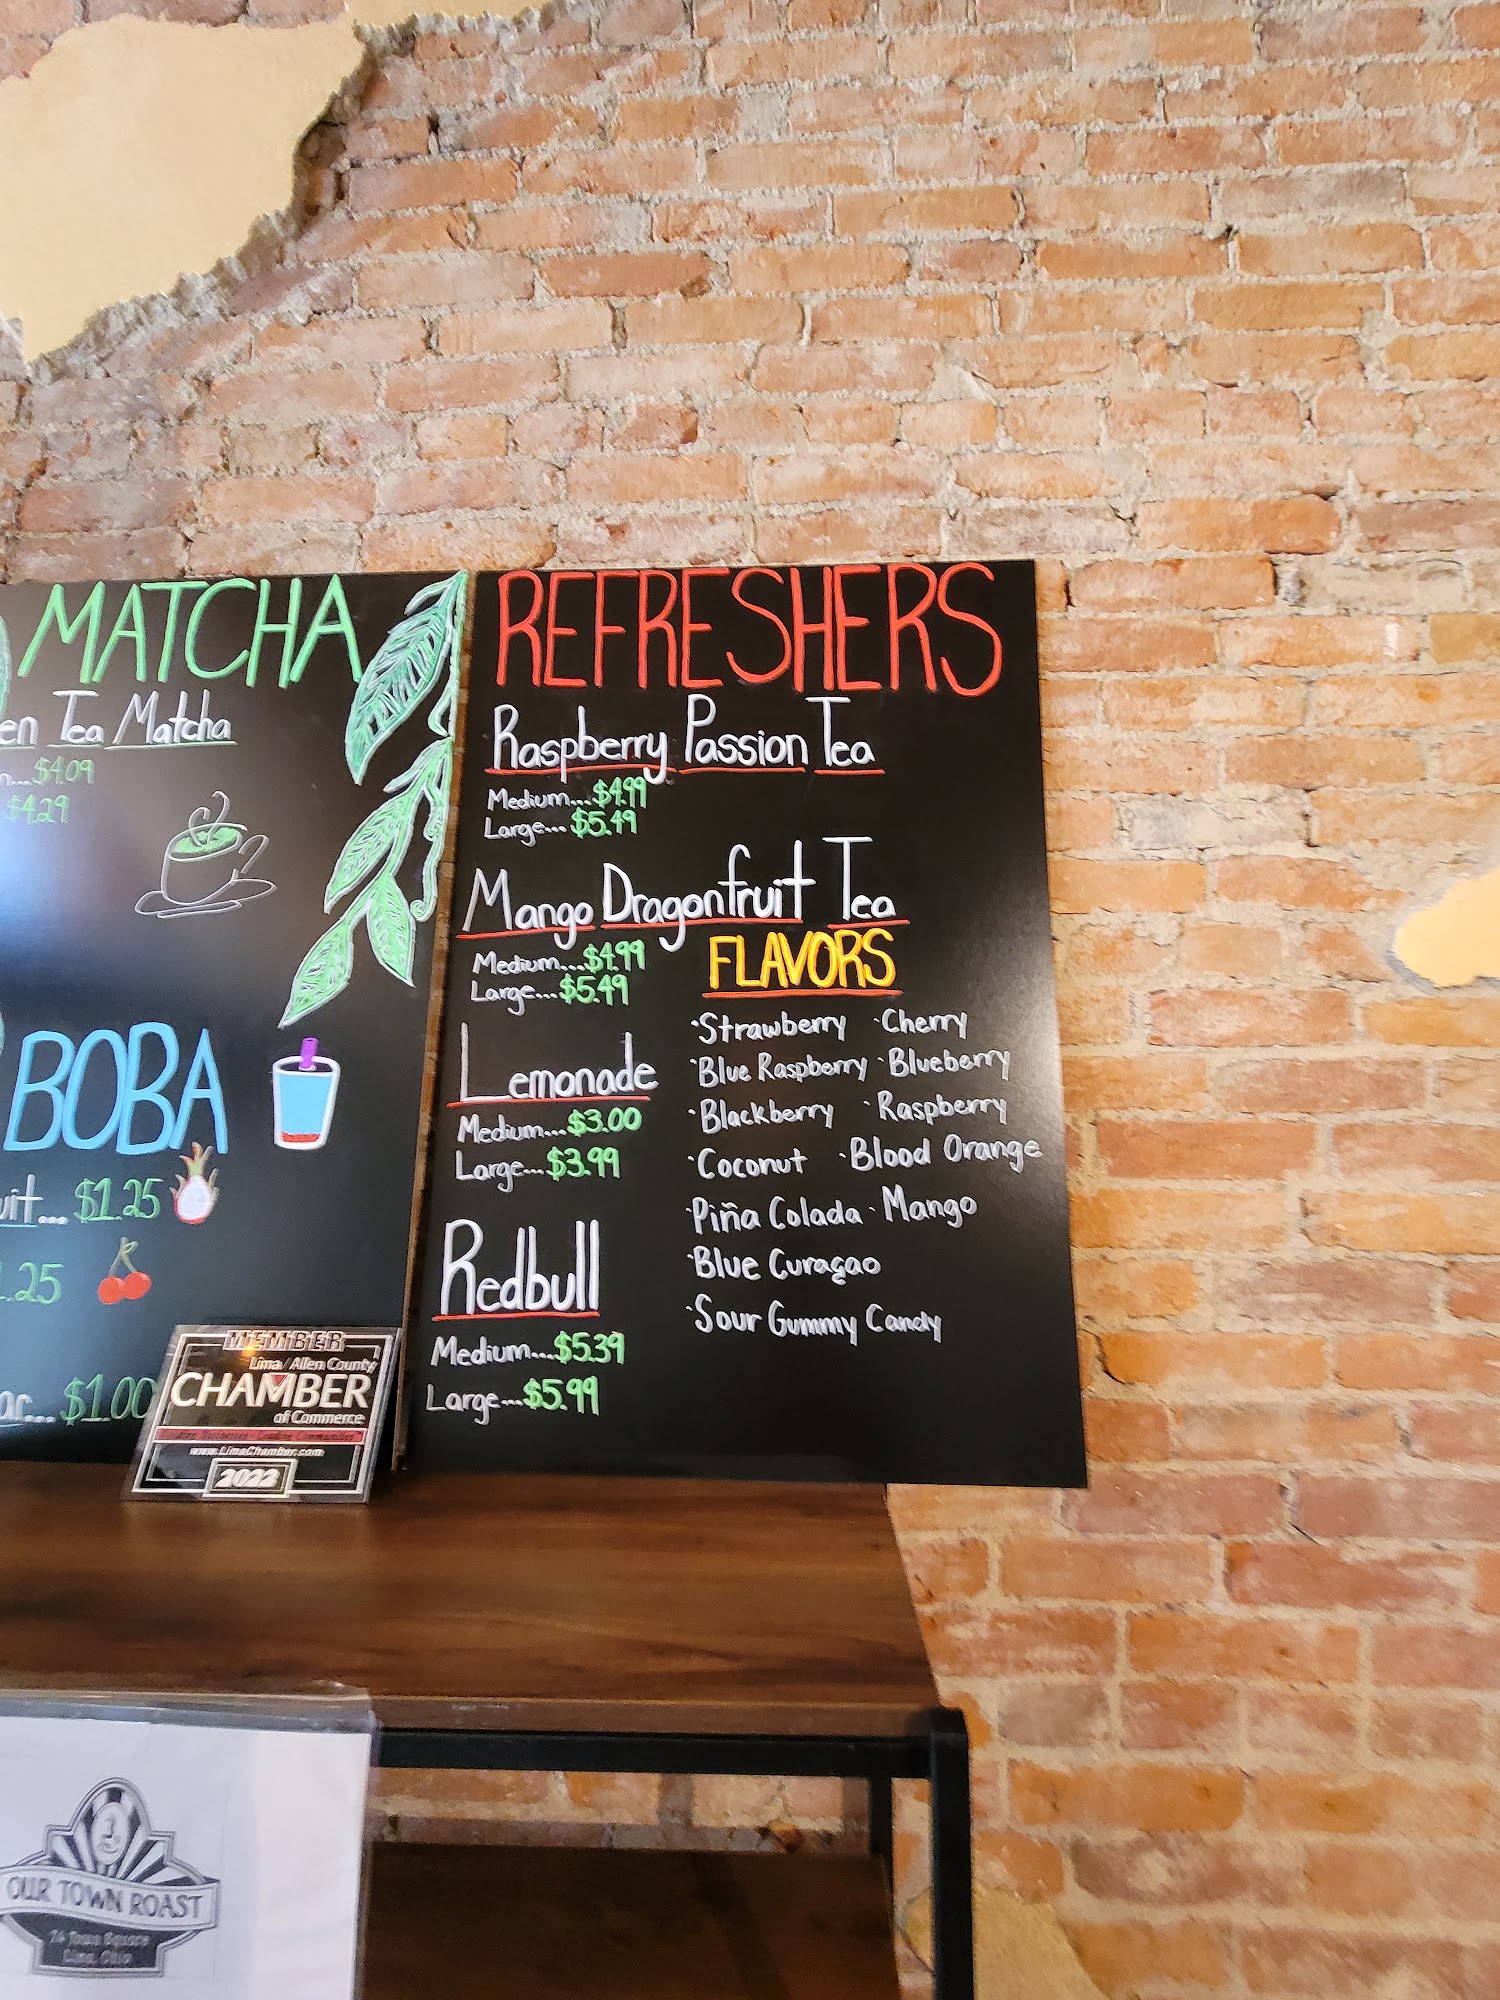 MATCHA
Tea Matcha
$4.09
$4.29
BOBA
$1.25
.25
$1.00
MEMBER
Lima / Allen County
CHAMBER
of Commerce
www.LimaChamber.com
2022
REFRESHERS
Raspberry Passion Tea
Medium...$4.99
Large...$5.49
Mango Dragonfruit Tea
Medium...$4.99
Large...$5.49
Lemonade
Medium...$3.00
Large...$3.99
Redbull
Medium....$5.39
Large...$5.99
FLAVORS
·Strawberry ·Cherry
·Blue Raspberry ·Blueberry
·Blackberry ·Raspberry
·Coconut ·Blood Orange
·Piña Colada ·Mango
·Blue Curaçao
·Sour Gummy Candy
OUR TOWN ROAST
Town Square
Lima, Ohio